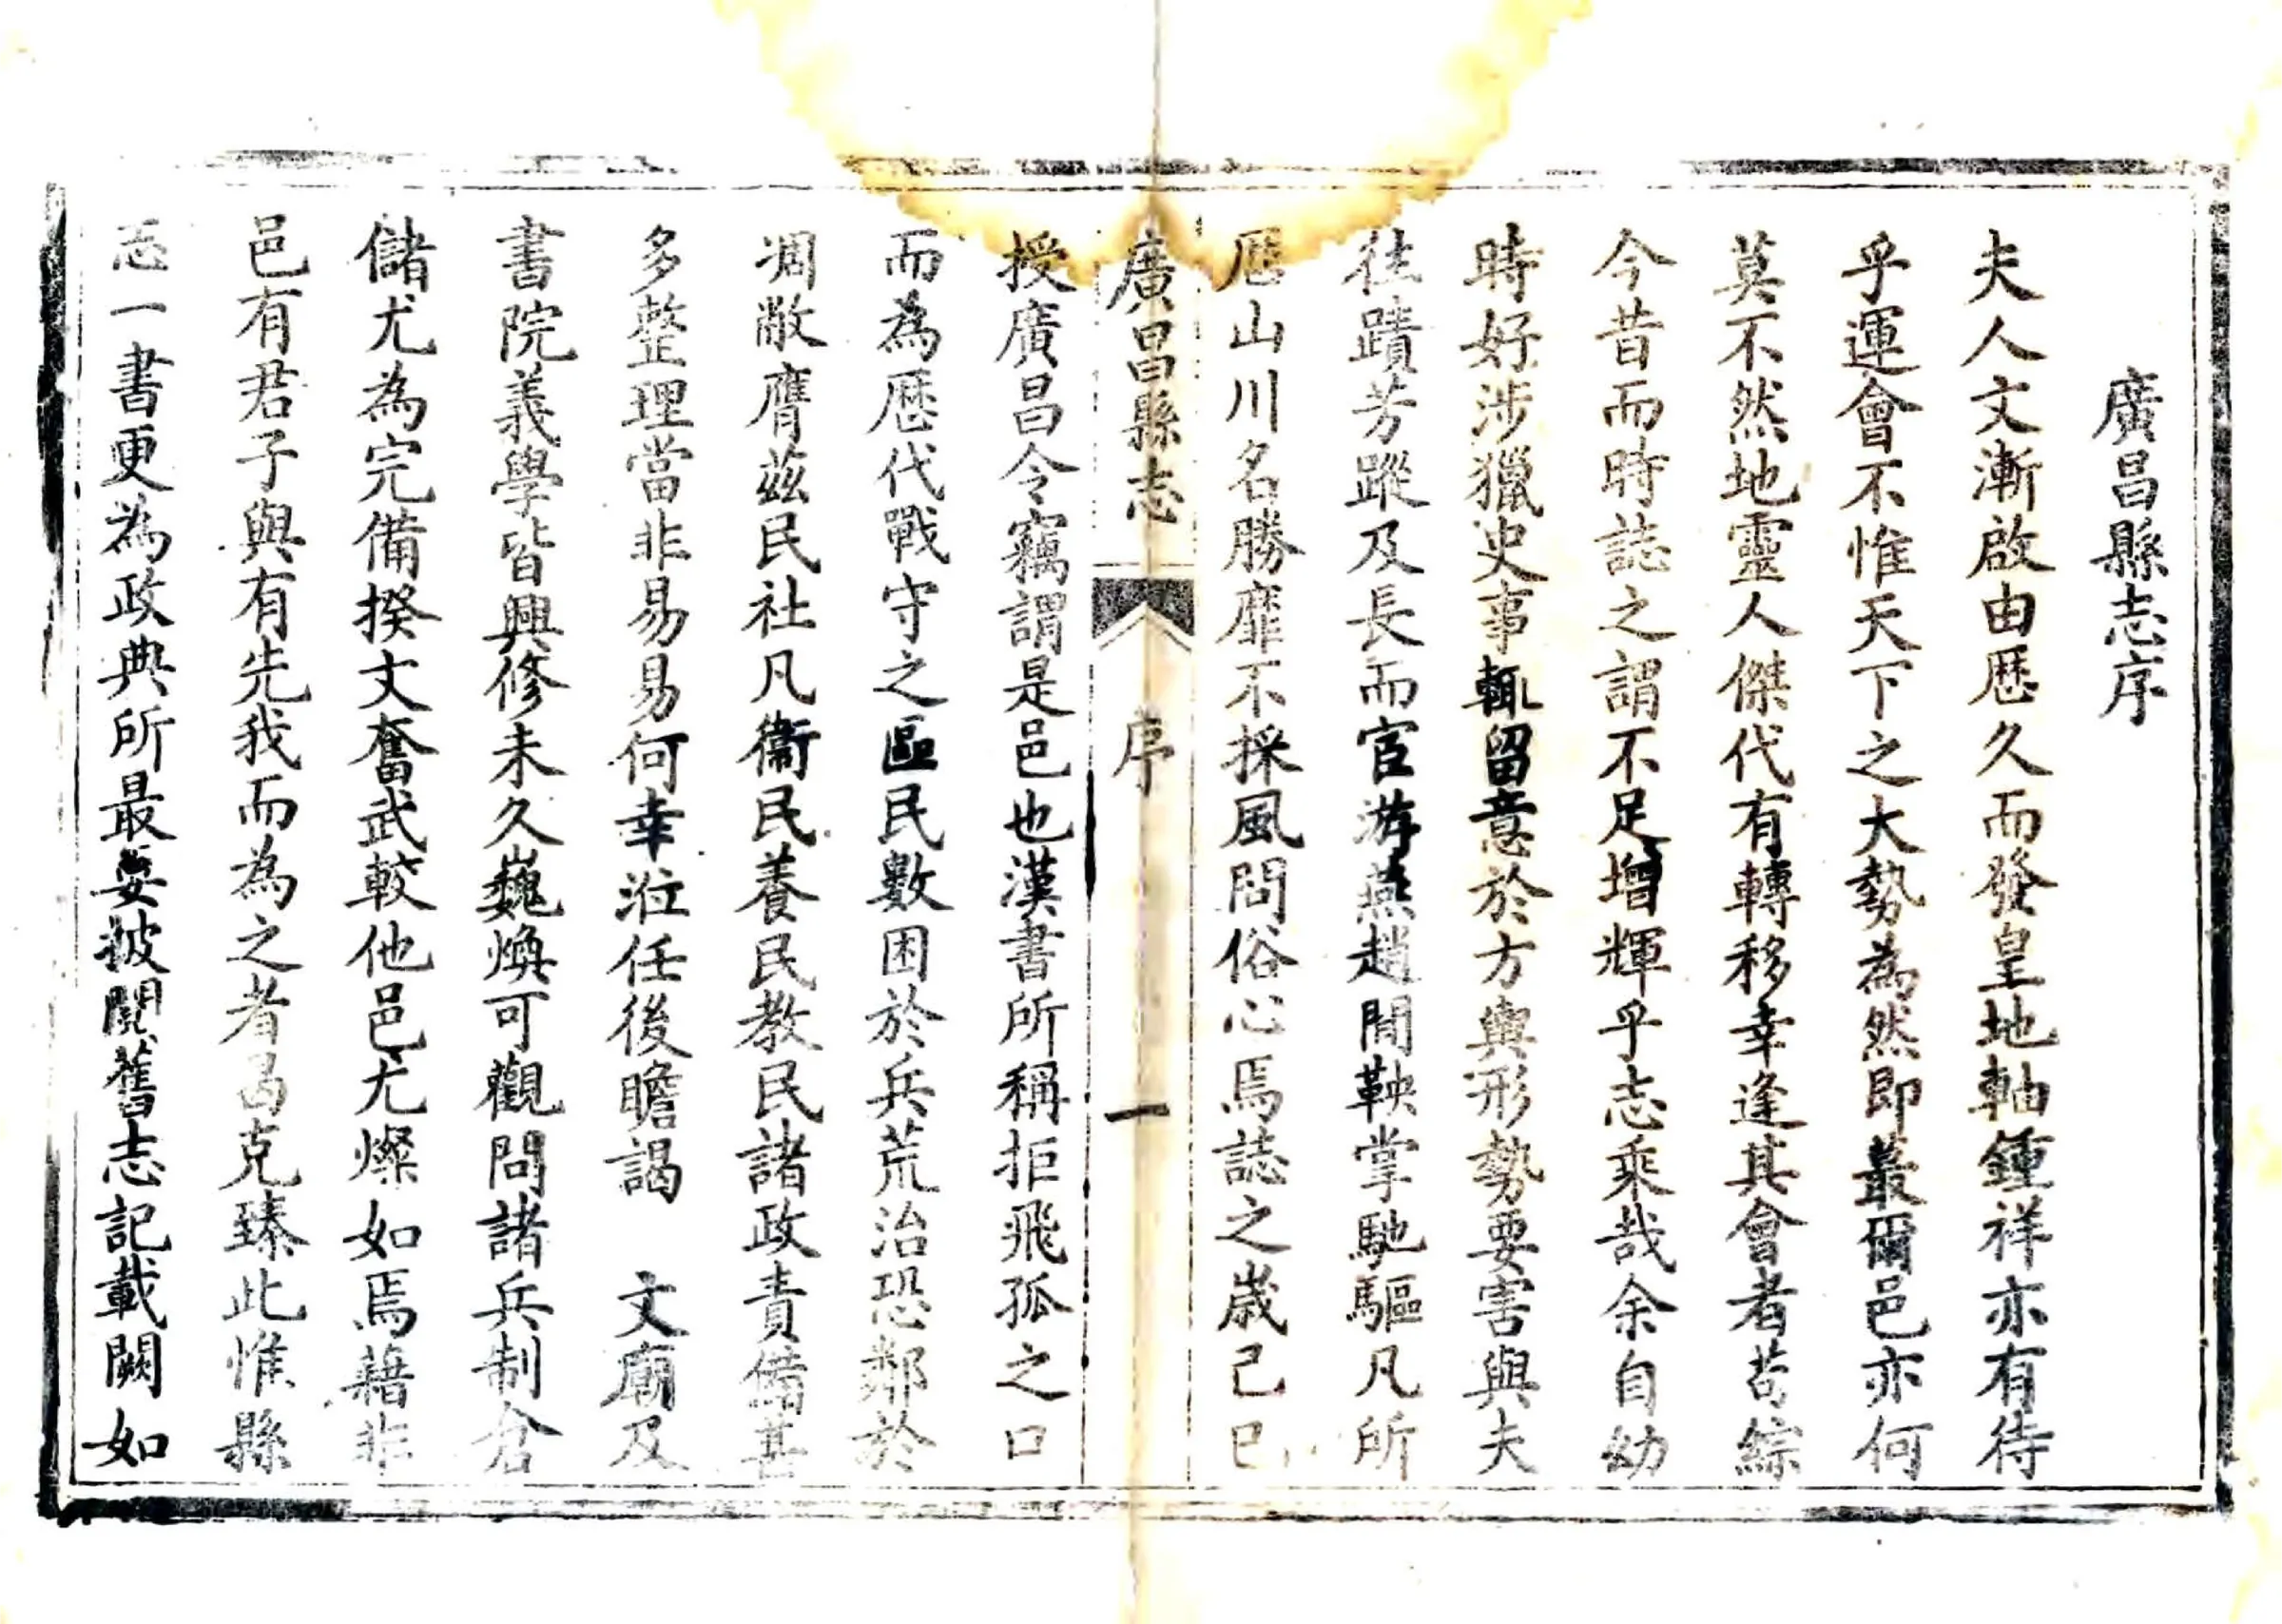 廣昌縣志序
夫人文漸啟由歷久而發皇地軸鍾祥亦有待
乎運會不惟天下之大勢為然即蕞爾邑亦何
莫不然地靈人傑代有轉移幸逢其會者苟綜
今昔而時誌之謂不足增輝乎志乘哉余自幼
時好涉獵史事輒留意於方輿形勢要害與夫
往蹟芳蹤及長而宦游燕趙間鞅掌馳驅凡所
歷山川名勝靡不採風問俗心焉誌之歲己巳
廣昌縣志 序 一
授廣昌令竊謂是邑也漢書所稱拒飛狐之口
而為歷代戰守之區民數困於兵荒治恐鄰於
凋敝膺茲民社凡衞民養民教民諸政責備甚
多整理當非易易何幸涖任後瞻謁 文廟及
書院義學皆興修未久巍煥可觀問諸兵制倉
儲尤為完備揆文奮武較他邑尤燦如焉藉非
邑有君子與有先我而為之者曷克臻此惟縣
志一書更為政典所最要披閱舊志記載闕如